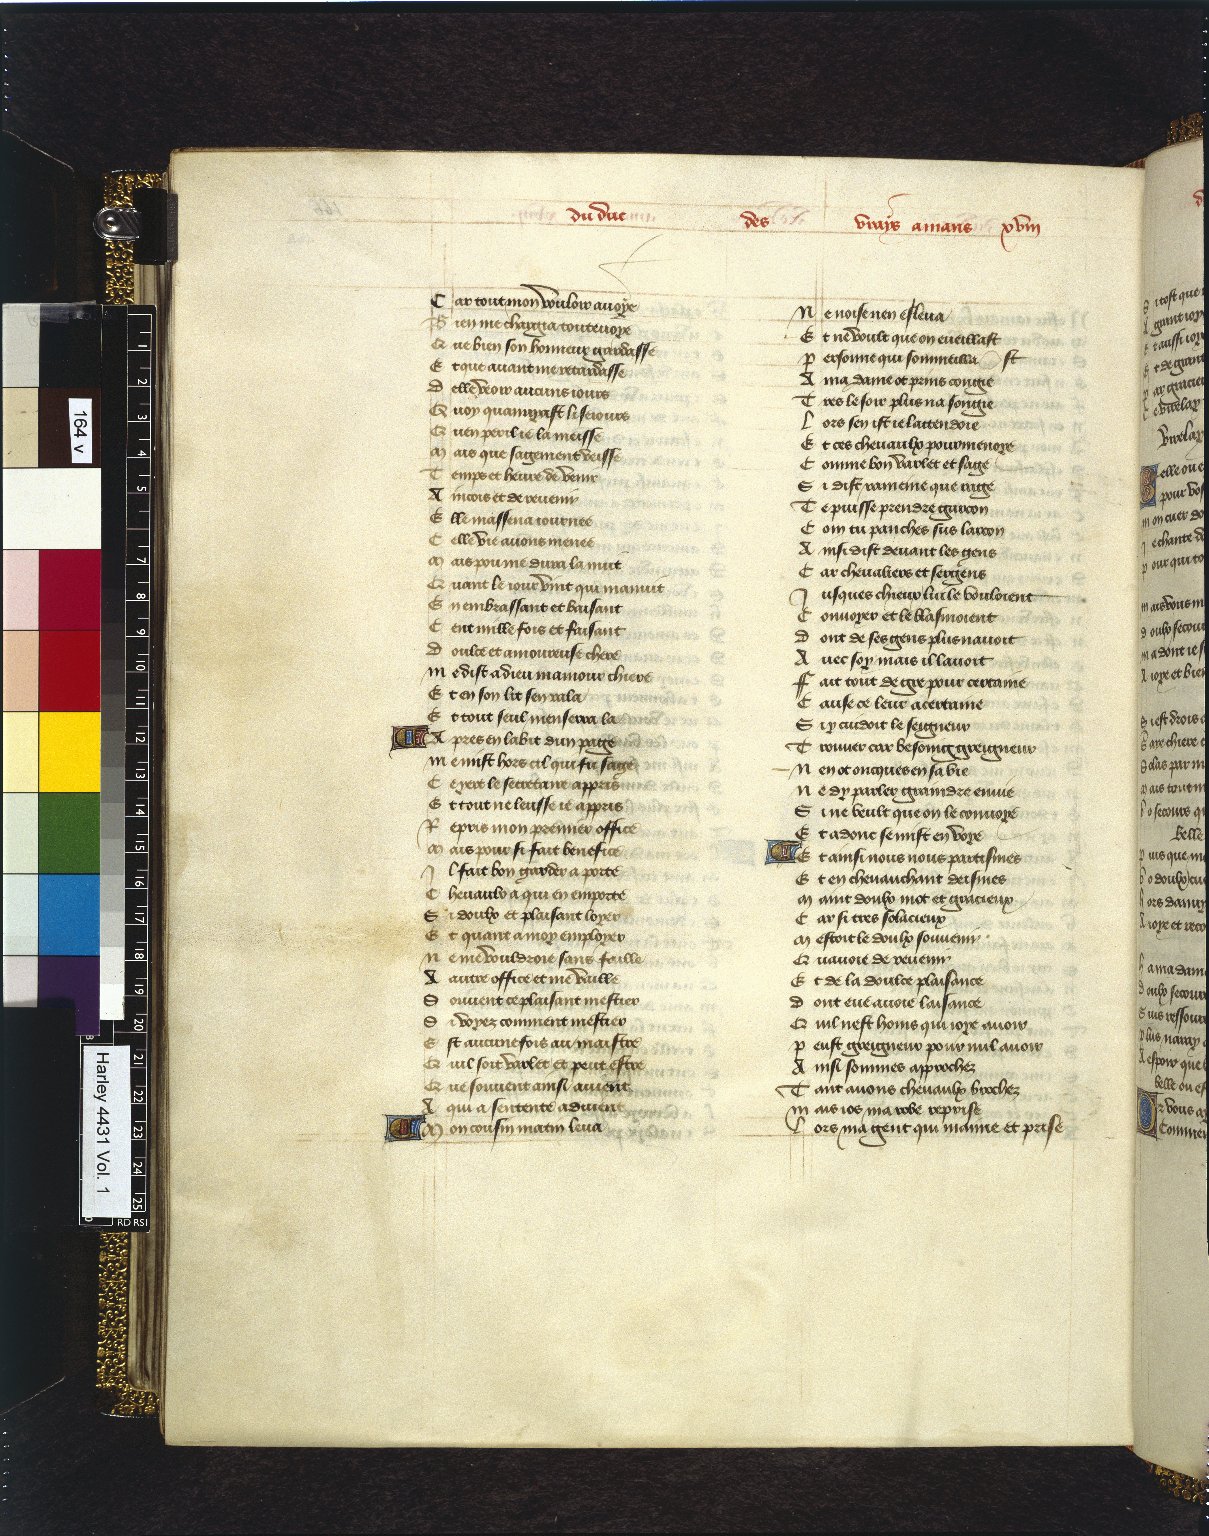 du duc des vrays amans xviii
Car tout mon vouloir auoye
Bien me charga toutevoye
Que bien son honneur gardasse
Et que auant me retardasse
Delle veoir aucuns iours
Quoy quampast li seiours
Quen peril ie la meisse
Mais que sagement veisse
Temps et heure de venir
Aincois et de reuenir
Elle massena iournee
Celle vie auons menee
Mais pou me dura la nuit
Quant le iour vint qui manuit
En embrassant et baisant
Cent mille fois et faisant
Doulce et amoureuse chere
me dist adieu mamour chiere
Et en son lit sen rala
Et tout seul menserra la
Apres en labit dun page
me mist hors cil qui fu sage
Cyere le secretaire appris
Et tout ne leusse ie appris
Repris mon premier office
Mais pour si fait benefice
Il fait bon garder a porte
Cheuaulx a qui en emporte
Si doulx et plaisant loyer
Et quant a moy employer
ne me vouldroie sans faille
A autre office et me vaille
Souuent ce plaisant mestier
Si voyez comment mestier
Est aucunefois au maistre
Quil soit varlet et peut estre
Que souuent ainsi auient
A qui a sentente aduient
Mon cousin matin leua
Ne noise nen esleua
Et ne voult que on eueillast
personne qui sommeillast
A ma dame ot prins congie
Tres le soir plus na songie
Lors sen ist ie lattendoie
Et ces cheuaulx pourmenoye
Comme bon varlet et sage
Si dist rameine que rage
Te puisse prendre garcon
Com tu panches sus larcon
Ainsi dist deuant les gens
Car cheualiers et sergens
Jusques chieux lui le vouloient
Conuoyer et le blasmoient
Dont de ses gens plus nauoit
Auec soy mais il lauoit
Fait tout de gre pour certaine
Cause ce leur acertaine
Si y cuidoit le seigneur
Trouuer car besoing greigneur
Nen ot oncques en sa vie
Ne dy parler graindre enuie
Si ne veult que on le conuoye
Et adonc se mist en voye
Et ainsi nous nous partismes
Et en cheuauchant deismes
Maint doulx mot et gracieux
Car si tres solacieux
Mestoit le doulx souuenir
Quauoie de reuenir
Et de la doulce plaisance
Dont eue auoie laisance
Quil nest homs qui ioye auoir
peust greigneur pour nul auoir
Ainsi sommes approchez
Tant auons cheuaulx brochez
mais ios ma robe reprise
Lors ma gent qui maime et prise
164 v
Harley 4431 Vol. 1